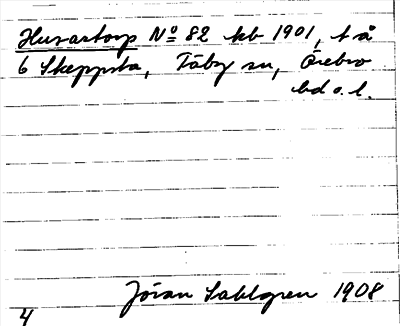 Husartorp No 82 kb 1901, t å
6 Skeppsta, Täby sn, Örebro
hd o. l.
Jöran Sahlgren 1908
4